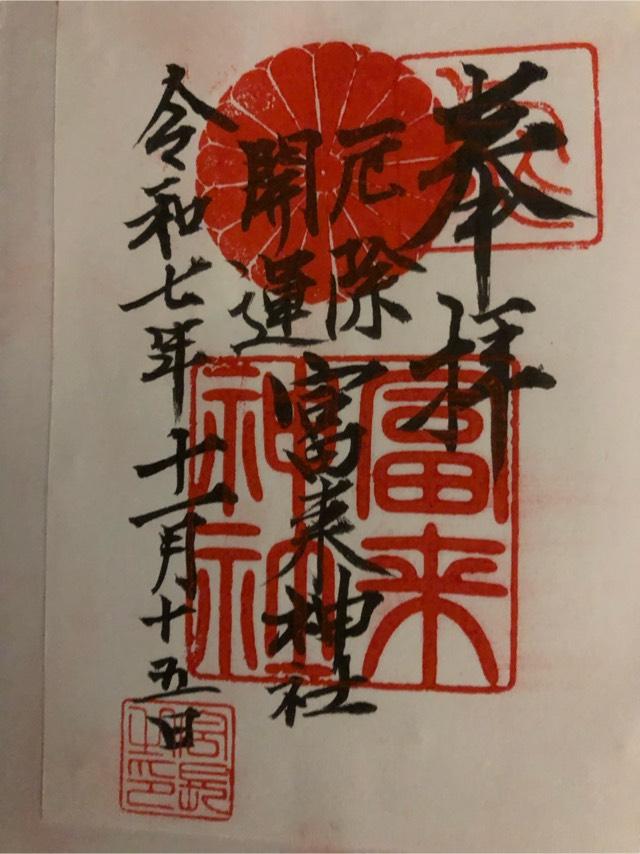 奉拝
厄除
開運
富来神社
令和七年十一月十五日
富来
神社